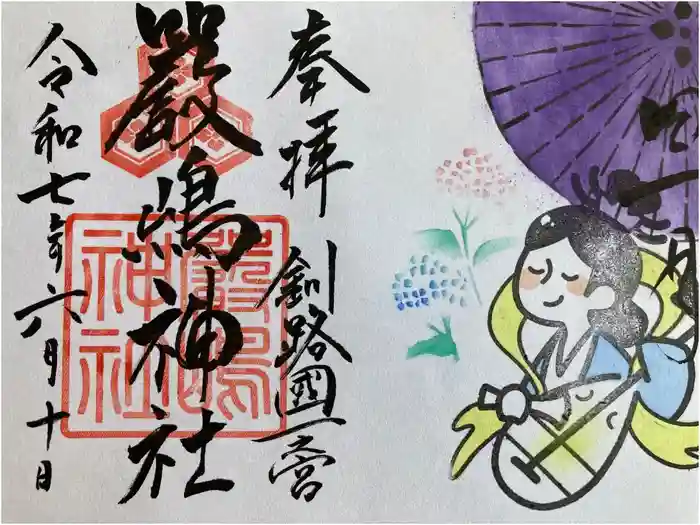 奉拝
釧路國一宮
厳嶋神社
令和七年六月十日
厳嶋
神社